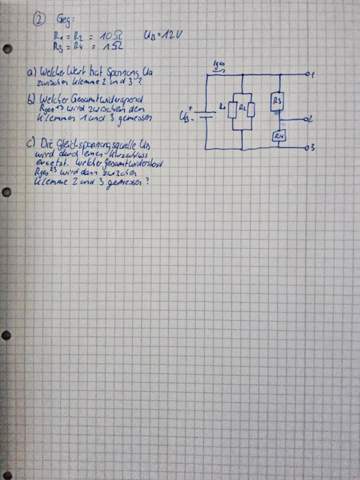 ② Geg:
R1 = R2 = 10Ω UB = 12V
R3 = R4 = 1Ω
a) Welcher Wert hat Spannung Ua
zwischen Klemme 2 und 3?
b) Welcher Gesamtwiderstand
Rges 13 wird zwischen den
Klemmen 1 und 3 gemessen
c) Die Gleichspannungsquelle UB
wird durch einen Kurzschluss
ersetzt. Welcher Gesamtwiderstand
Rges 23 wird dann zwischen
Klemme 2 und 3 gemessen?
Iges
1
R1
R2
R3
UB
+
-
2
R4
3